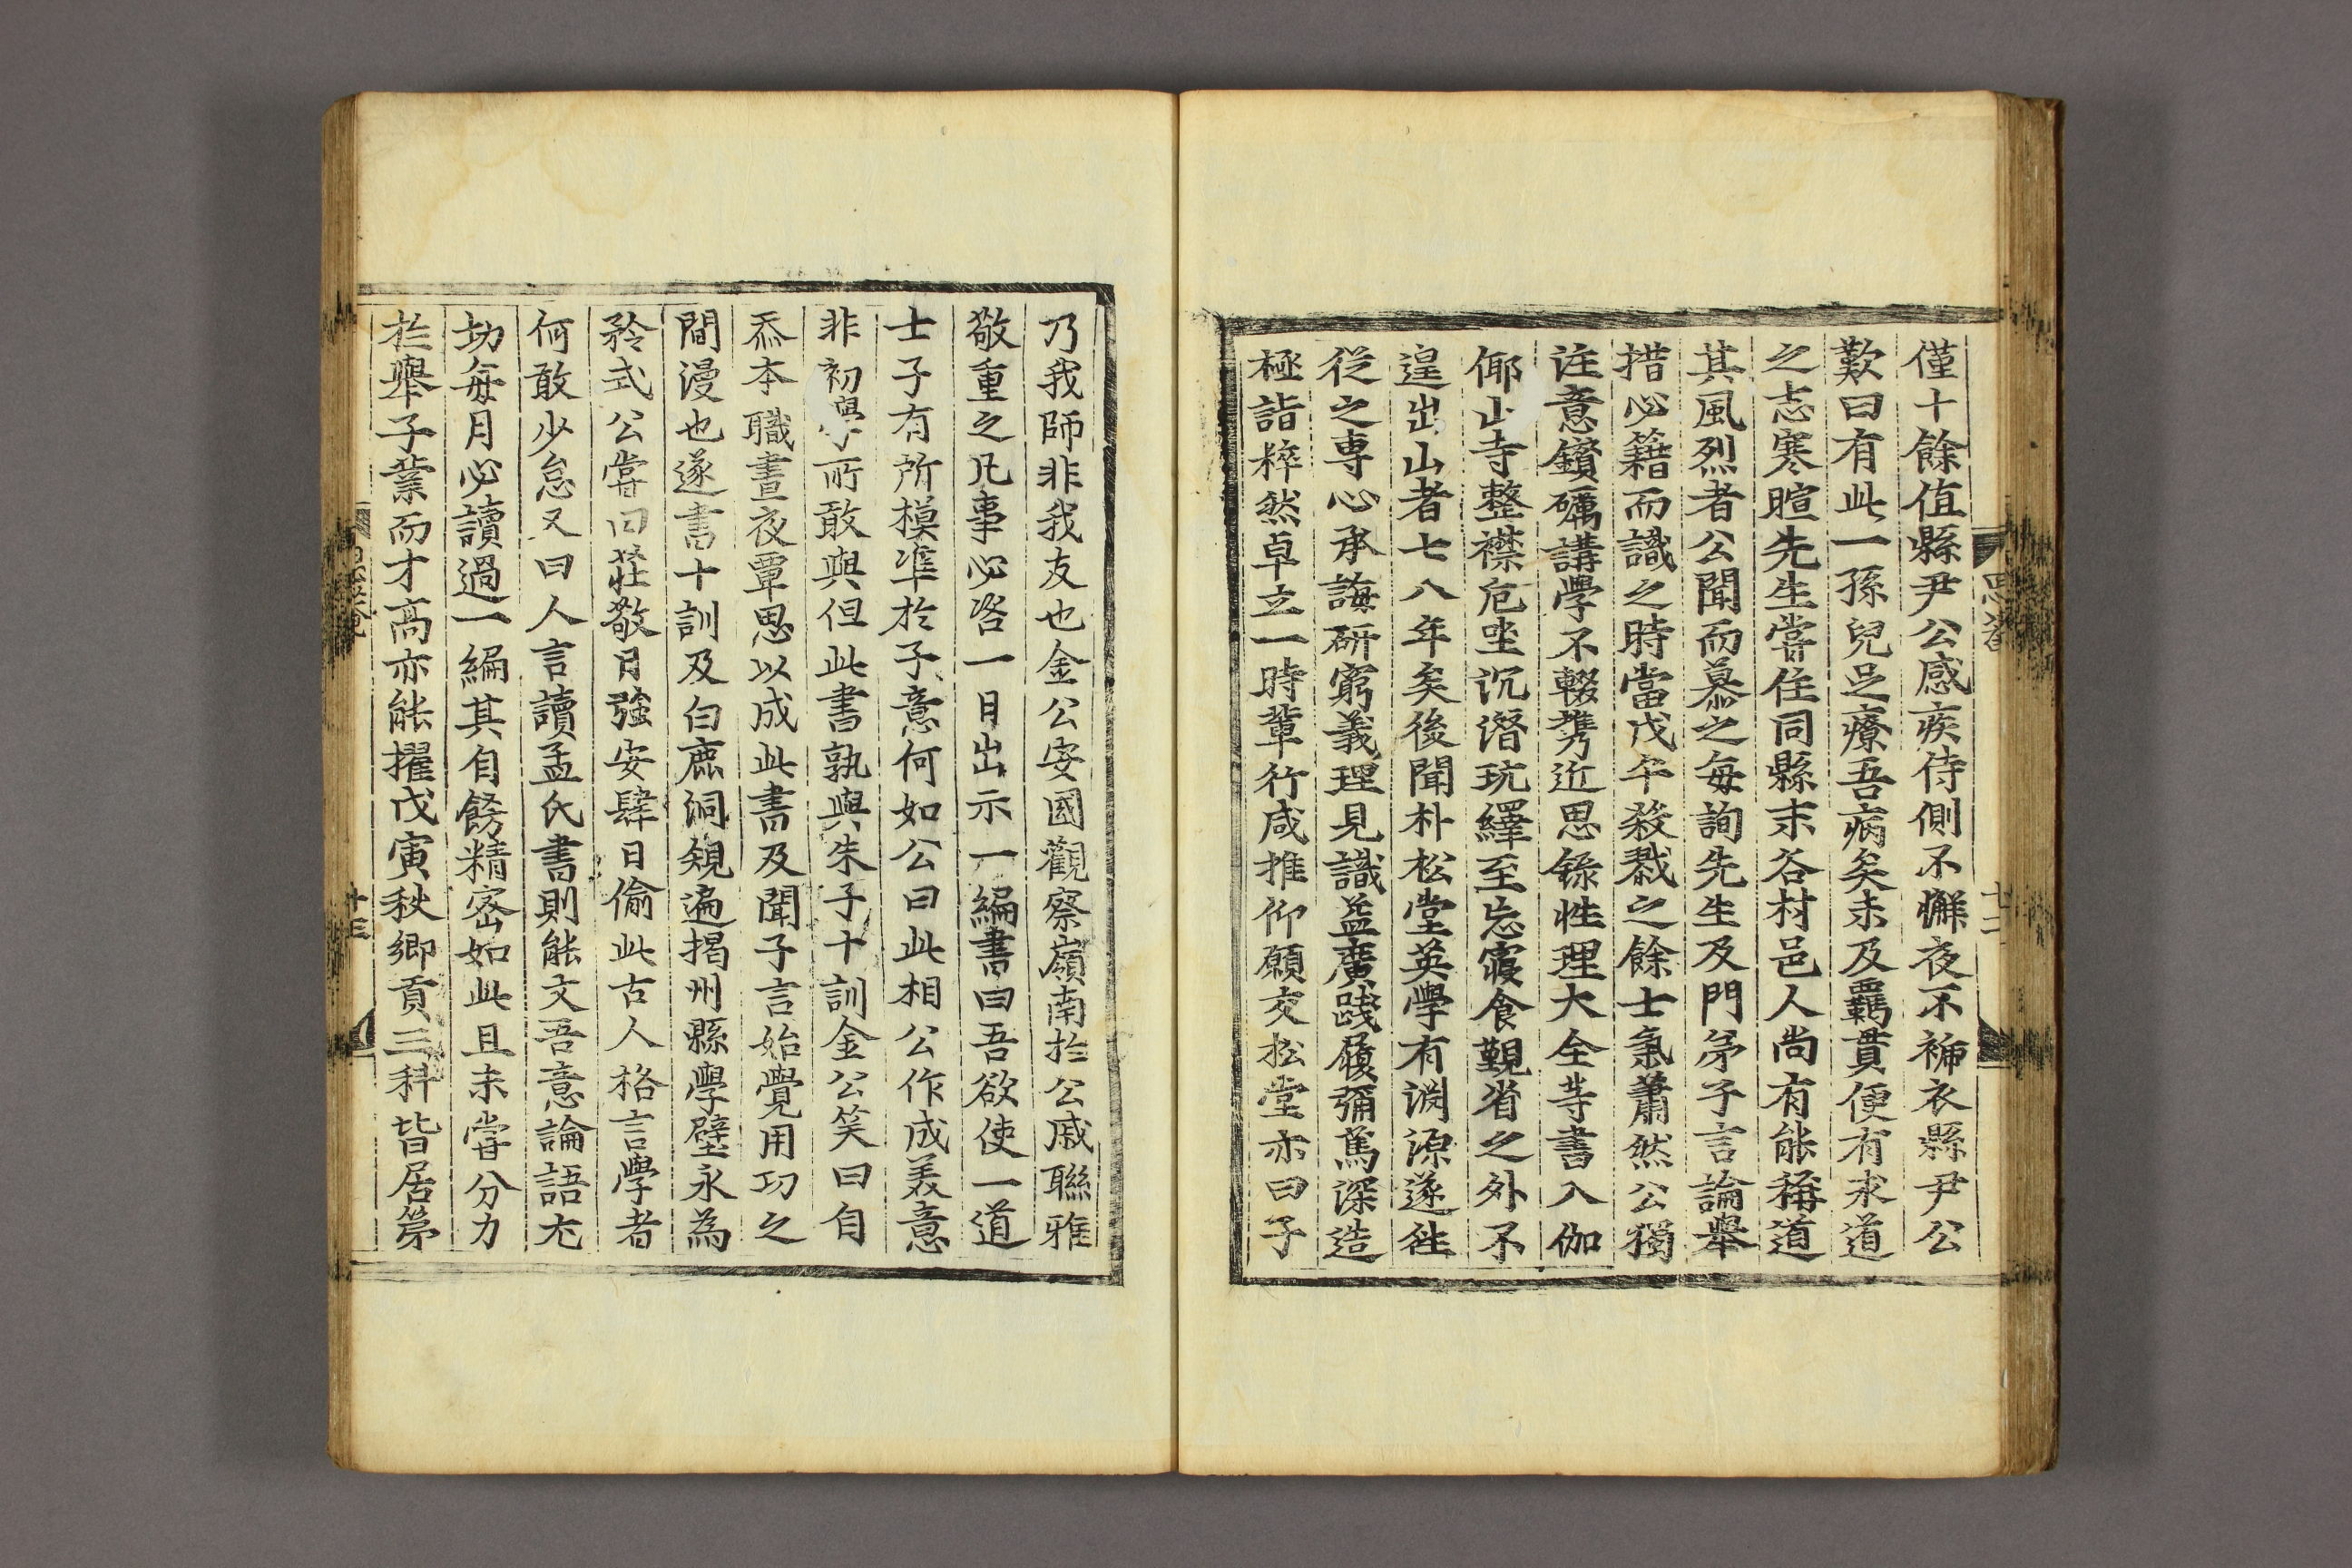 僅十餘值縣尹公感疾侍側不懈夜不褫衣縣尹公
歎曰有此一孫兒足療吾病矣未及羈貫便有求道
之志寒暄先生嘗住同縣末谷村邑人尚有能稱道
其風烈者公聞而慕之每詢先生及門弟子言論擧
措必籍而識之時當戊午殺戮之餘士氣蕭然公獨
注意鑽礪講學不輟携近思錄性理大全等書入伽
倻山寺整襟危坐沉潛玩繹至忘寢食覲省之外不
遑出山者七八年矣後聞朴松堂英學有淵源遂往
從之專心承誨硏窮義理見識益廣踐履彌篤深造
極詣粹然卓立一時輩行咸推仰願交松堂亦曰子
乃我師非我友也金公安國觀察嶺南於公戚聯雅
敬重之凡事必咨一日出示一編書曰吾欲使一道
士子有所模準於子意何如公曰此相公作成美意
非初學所敢與但此書孰與朱子十訓金公笑曰自
忝本職晝夜覃思以成此書及聞子言始覺用功之
間漫也遂書十訓及白鹿洞規遍揭州縣學壁永爲
矜式公嘗曰莊敬日強安肆日偸此古人格言學者
何敢少怠又曰人言讀孟氏書則能文吾意論語尤
切每月必讀過一編其自飭精密如此且未嘗分力
於擧子業而才高亦能擢戊寅秋鄕貢三科皆居第
思齋
十二
十三